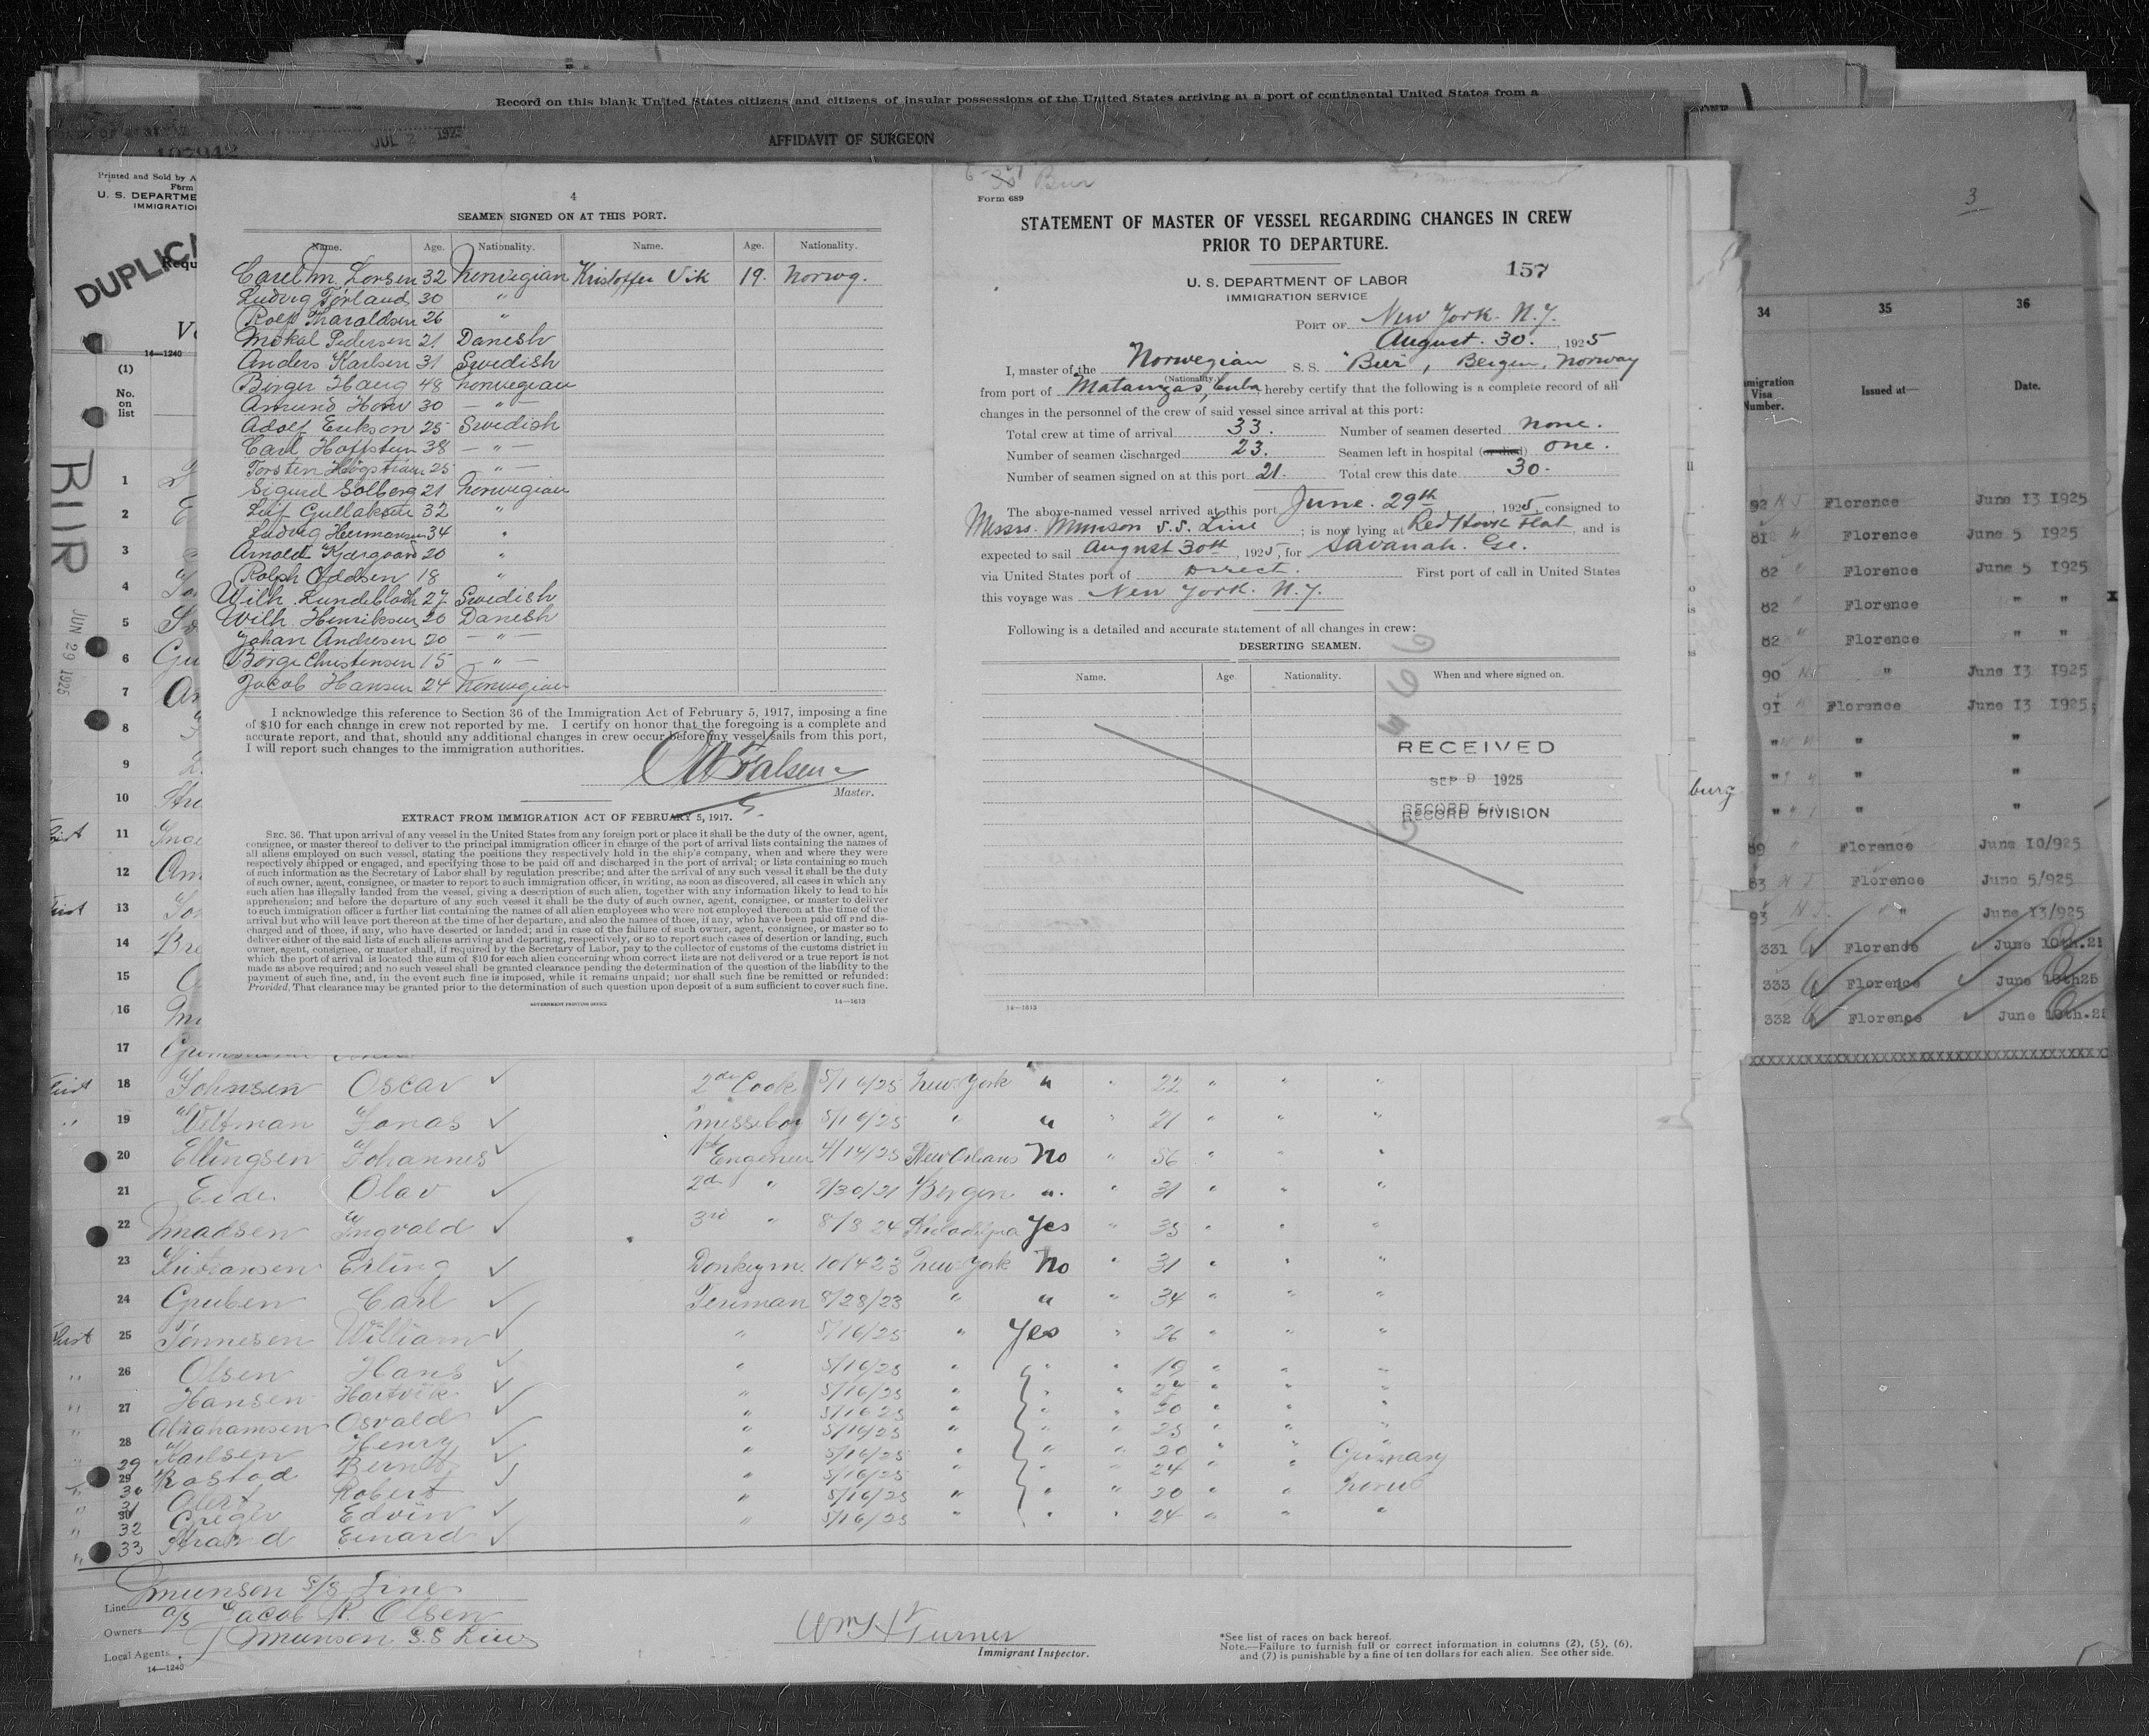 Record on this blank United States citizens and citizens of insular possessions of the United States arriving at a port of continental United States from a
JUL 2 1925
AFFIDAVIT OF SURGEON
107942
Printed and Sold by A
Form
U. S. DEPARTME
IMMIGRATIO
DUPLICA
Requ
14—1240
(1)
No.
on
list
BUR
JUN 29 1925
4
SEAMEN SIGNED ON AT THIS PORT.
Name. Age. Nationality. Name. Age. Nationality.
Carel M. Larsen 32 Norwegian Kristoffer Vik 19. Norwg.
Ludvig Torland 30 "
Rolf Tharaldsen 26 "
Mikal Pedersen 21 Danish
Anders Karlsen 31 Swedish
Birger Haug 48 Norwegian
Amund 30 — " —
Adolf Erikson 25 Swedish
Carl Hoffstein 38 — " —
Torsten Högström 25 " —
Sigurd Solberg 21 Norwegian
Leif Gullaksen 32 "
Ludvig Hermansen 34 "
Arnold Kjærgaard 20 "
Rolph Oddsen 18 "
Wilh. Lundebladh 27 Swedish
Wilh. Henriksen 20 Danish
Johan Andresen 20 — " —
Borge Christensen 15 " —
Jacob Hansen 24 Norwegian
I acknowledge this reference to Section 36 of the Immigration Act of February 5, 1917, imposing a fine
of $10 for each change in crew not reported by me. I certify on honor that the foregoing is a complete and
accurate report, and that, should any additional changes in crew occur before my vessel sails from this port,
I will report such changes to the immigration authorities.
Falsen
Master.
EXTRACT FROM IMMIGRATION ACT OF FEBRUARY 5, 1917.
SEC. 36. That upon arrival of any vessel in the United States from any foreign port or place it shall be the duty of the owner, agent,
consignee, or master thereof to deliver to the principal immigration officer in charge of the port of arrival lists containing the names of
all aliens employed on such vessel, stating the positions they respectively hold in the ship's company, when and where they were
respectively shipped or engaged, and specifying those to be paid off and discharged in the port of arrival; or lists containing so much
of such information as the Secretary of Labor shall by regulation prescribe; and after the arrival of any such vessel it shall be the duty
of such owner, agent, consignee, or master to report to such immigration officer, in writing, as soon as discovered, all cases in which any
such alien has illegally landed from the vessel, giving a description of such alien, together with any information likely to lead to his
apprehension; and before the departure of any such vessel it shall be the duty of such owner, agent, consignee, or master to deliver
to such immigration officer a further list containing the names of all alien employees who were not employed thereon at the time of the
arrival but who will leave port thereon at the time of her departure, and also the names of those, if any, who have been paid off and dis-
charged and of those, if any, who have deserted or landed; and in case of the failure of such owner, agent, consignee, or master so to
deliver either of the said lists of such aliens arriving and departing, respectively, or so to report such cases of desertion or landing, such
owner, agent, consignee, or master shall, if required by the Secretary of Labor, pay to the collector of customs of the customs district in
which the port of arrival is located the sum of $10 for each alien concerning whom correct lists are not delivered or a true report is not
made as above required; and no such vessel shall be granted clearance pending the determination of the question of the liability to the
payment of such fine, and, in the event such fine is imposed, while it remains unpaid; nor shall such fine be remitted or refunded:
Provided, That clearance may be granted prior to the determination of such question upon deposit of a sum sufficient to cover such fine.
GOVERNMENT PRINTING OFFICE 14—1613
Bur
Form 689
STATEMENT OF MASTER OF VESSEL REGARDING CHANGES IN CREW
PRIOR TO DEPARTURE.
157
U. S. DEPARTMENT OF LABOR
IMMIGRATION SERVICE
PORT OF New York. N.Y.
August. 30. , 1925
I, master of the Norwegian S. S. "Bur", Bergen, Norway
(Nationality.)
from port of Matanzas, Cuba, hereby certify that the following is a complete record of all
changes in the personnel of the crew of said vessel since arrival at this port:
Total crew at time of arrival 33. Number of seamen deserted None.
Number of seamen discharged 23. Seamen left in hospital (or died) One.
Number of seamen signed on at this port 21. Total crew this date 30.
The above-named vessel arrived at this port June. 29th , 1925, consigned to
Messrs. Munson S.S. Line ; is now lying at Red Hook Flat, and is
expected to sail August 30th , 1925, for Savanah. Ge.
via United States port of Direct. First port of call in United States
this voyage was New York. N.Y.
Following is a detailed and accurate statement of all changes in crew:
DESERTING SEAMEN.
Name. Age. Nationality. When and where signed on.
RECEIVED
SEP 9 1925
RECORD DIVISION
14—1613
3
34 35 36
Immigration Visa Number. Issued at— Date.
92 N J Florence June 13 1925
81 " Florence June 5 1925
82 " Florence June 5 1925
82 " Florence " "
82 " Florence " "
90 NJ " June 13 1925
91 " Florence June 13 1925
" " "
" " "
" " "
89 " Florence June 10/925
83 N J Florence June 5/925
93 N J. " June 13/925
331 Florence June 10th.25
333 Florence June 10th25
332 Florence June 10th.25
xxxxxxxxxxxxxxxxxxxxxxxxxxxxxxxxxx
burg
1
2
3
4
5
6
7
8
9
10
11
12
13
14
15
16
17
18 Johnsen Oscar 2nd Cook 5/16/25 New York " " 22 " " "
19 Veltman Jonas messeboy 5/16/25 " " " 21 " " "
20 Ellingsen Johannes 1st Engeneer 4/14/25 New Orleans No " 56 " " "
21 Eide Olav 2nd " 9/30/21 Bergen " " 31 " " "
22 Madsen Ingvald 3rd " 8/8 24 Philadelphia Yes " 35 " " "
23 Kristiansen Erling Donkeym. 10/4 23 New York No " 31 " " "
24 Gruben Carl Fireman 8/28/23 " " " 34 " " "
First 25 Tönnesen William " 5/16/25 " Yes " 26 " " "
26 Olsen Hans " 5/16/25 " " " 19 " " "
27 Hansen Hartvik " 5/16/25 " " "
Abrahamsen Osvald 5/16 25 " " " 30 " " "
28 Karlsen Henry " 5/16/25 " " " 25 " "
29 Rostad Bernt " 5/16/25 " " " 20 " " Germany
30 Robert 5/16/25 " " 24 " "
31 Creger Edvin " 5/16/25 " " " 20 " " Norw
32
33 Strand Einard " 5/16/25 " " " 24 " " "
Line Munson S/S Line
Owners A/S Jacob R. Olsen
Local Agents Munson S.S Line
14—1240
Wm H Turner
Immigrant Inspector.
*See list of races on back hereof.
Note.—Failure to furnish full or correct information in columns (2), (5), (6),
and (7) is punishable by a fine of ten dollars for each alien. See other side.